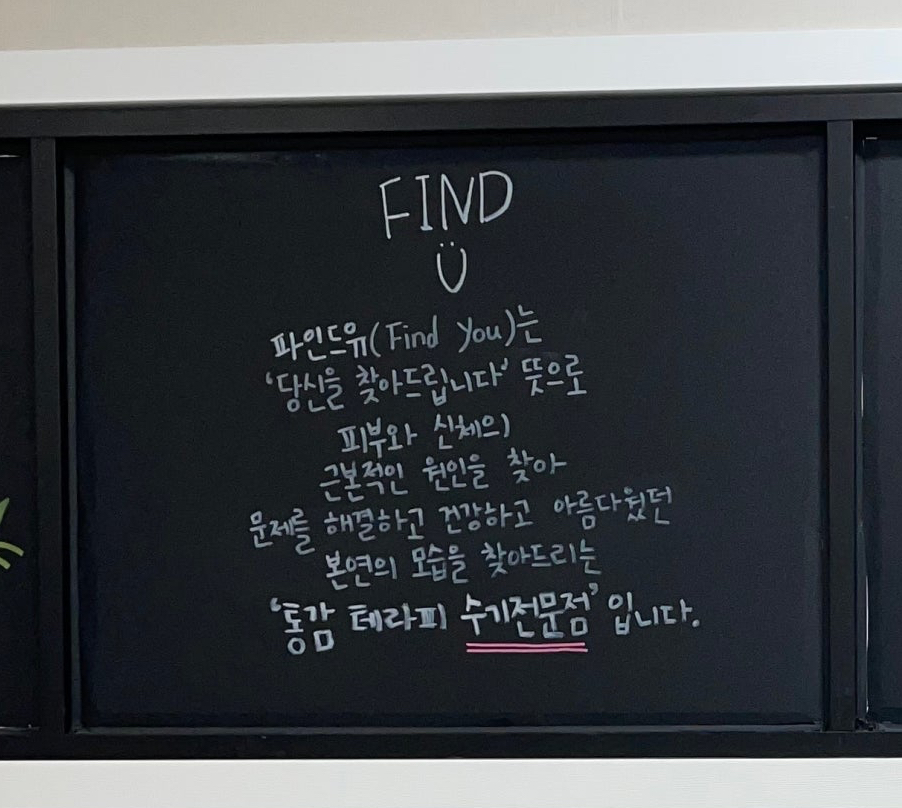 FIND
Ü
파인드유(Find You)는
'당신을 찾아드립니다' 뜻으로
피부와 신체의
근본적인 원인을 찾아
문제를 해결하고 건강하고 아름다웠던
본연의 모습을 찾아드리는
'통감 테라피 수기전문점' 입니다.